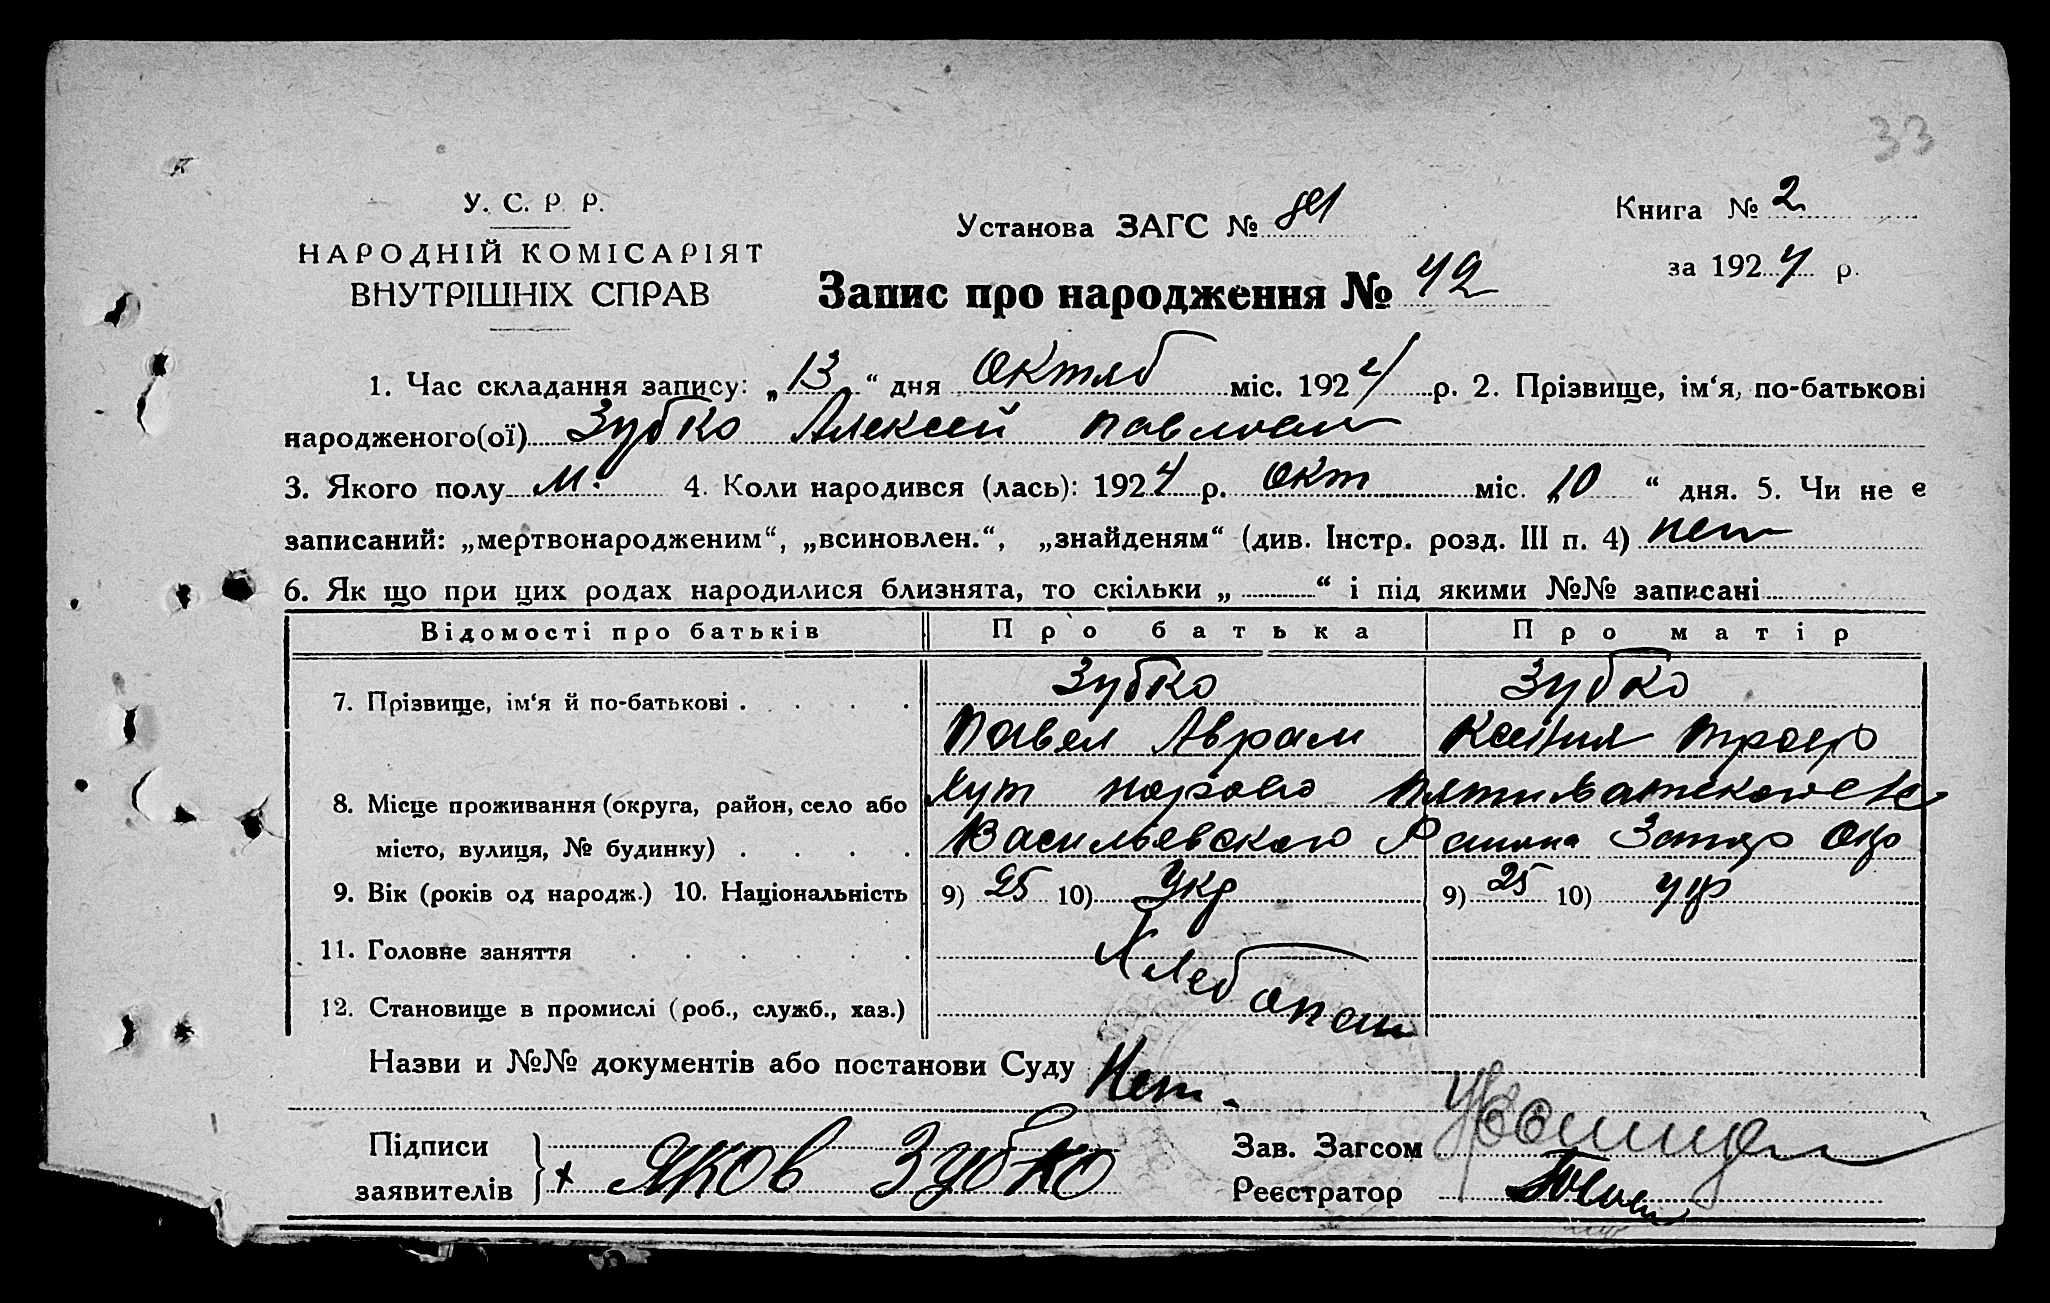 33
У. С. Р. Р.
НАРОДНІЙ КОМІСАРІЯТ
ВНУТРІШНІХ СПРАВ
Установа ЗАГС №
Книга № 2
за 1924 р.
Запис про народження № 42
1. Час складання запису: „13“ дня Октяб міс. 1924 р. 2. Прізвище, ім‘я, по-батькові
народженого(ої) Зубко Алексей Павлович
3. Якого полу м. 4. Коли народився (лась): 1924 р. окт міс. 10 “ дня. 5. Чи не є
записаний: „мертвонародженим“, „всиновлен.“, „знайденям“ (див. Інстр. розд. III п. 4) нет
6. Як що при цих родах народилися близнята, то скільки „ “ і під якими №№ записані
Відомості про батьків Про батька Про матір
7. Прізвище, ім‘я й по-батькові . . . . Зубко Зубко
Павел Аврам Ксения Троф
8. Місце проживання (округа, район, село або хут
місто, вулиця, № будинку) . . . . Васильевского Района Запор Окр
9. Вік (років од народж.) 10. Національність 9) 25 10) Укр 9) 25 10) укр
11. Головне заняття . . . . . . Хлебопаш
12. Становище в промислі (роб., служб., хаз.)
Назви и №№ документів або постанови Суду Нет.
Підписи
заявителів } + Яков Зубко
Зав. Загсом
Реєстратор